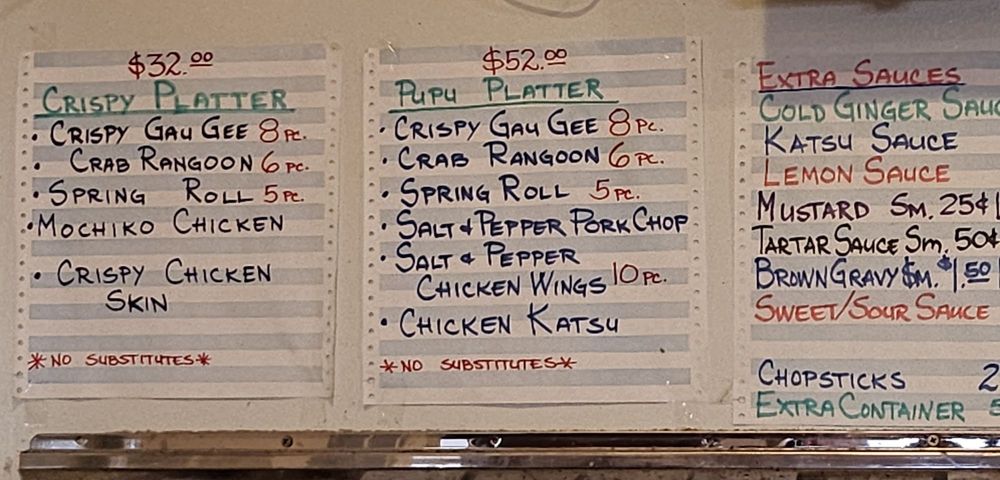 $32.00
CRISPY PLATTER
• CRISPY GAU GEE 8 PC.
• CRAB RANGOON 6 PC.
• SPRING ROLL 5 PC.
• MOCHIKO CHICKEN
• CRISPY CHICKEN
SKIN
*NO SUBSTITUTES*
$52.00
PUPU PLATTER
• CRISPY GAU GEE 8 PC.
• CRAB RANGOON 6 PC.
• SPRING ROLL 5 PC.
• SALT & PEPPER PORK CHOP
• SALT & PEPPER
CHICKEN WINGS 10 PC.
• CHICKEN KATSU
*NO SUBSTITUTES*
EXTRA SAUCES
COLD GINGER
KATSU SAUCE
LEMON SAUCE
MUSTARD SM. 25¢
TARTAR SAUCE SM. 50¢
BROWN GRAVY SM. $1.50
SWEET/SOUR SAUCE
CHOPSTICKS
EXTRA CONTAINER